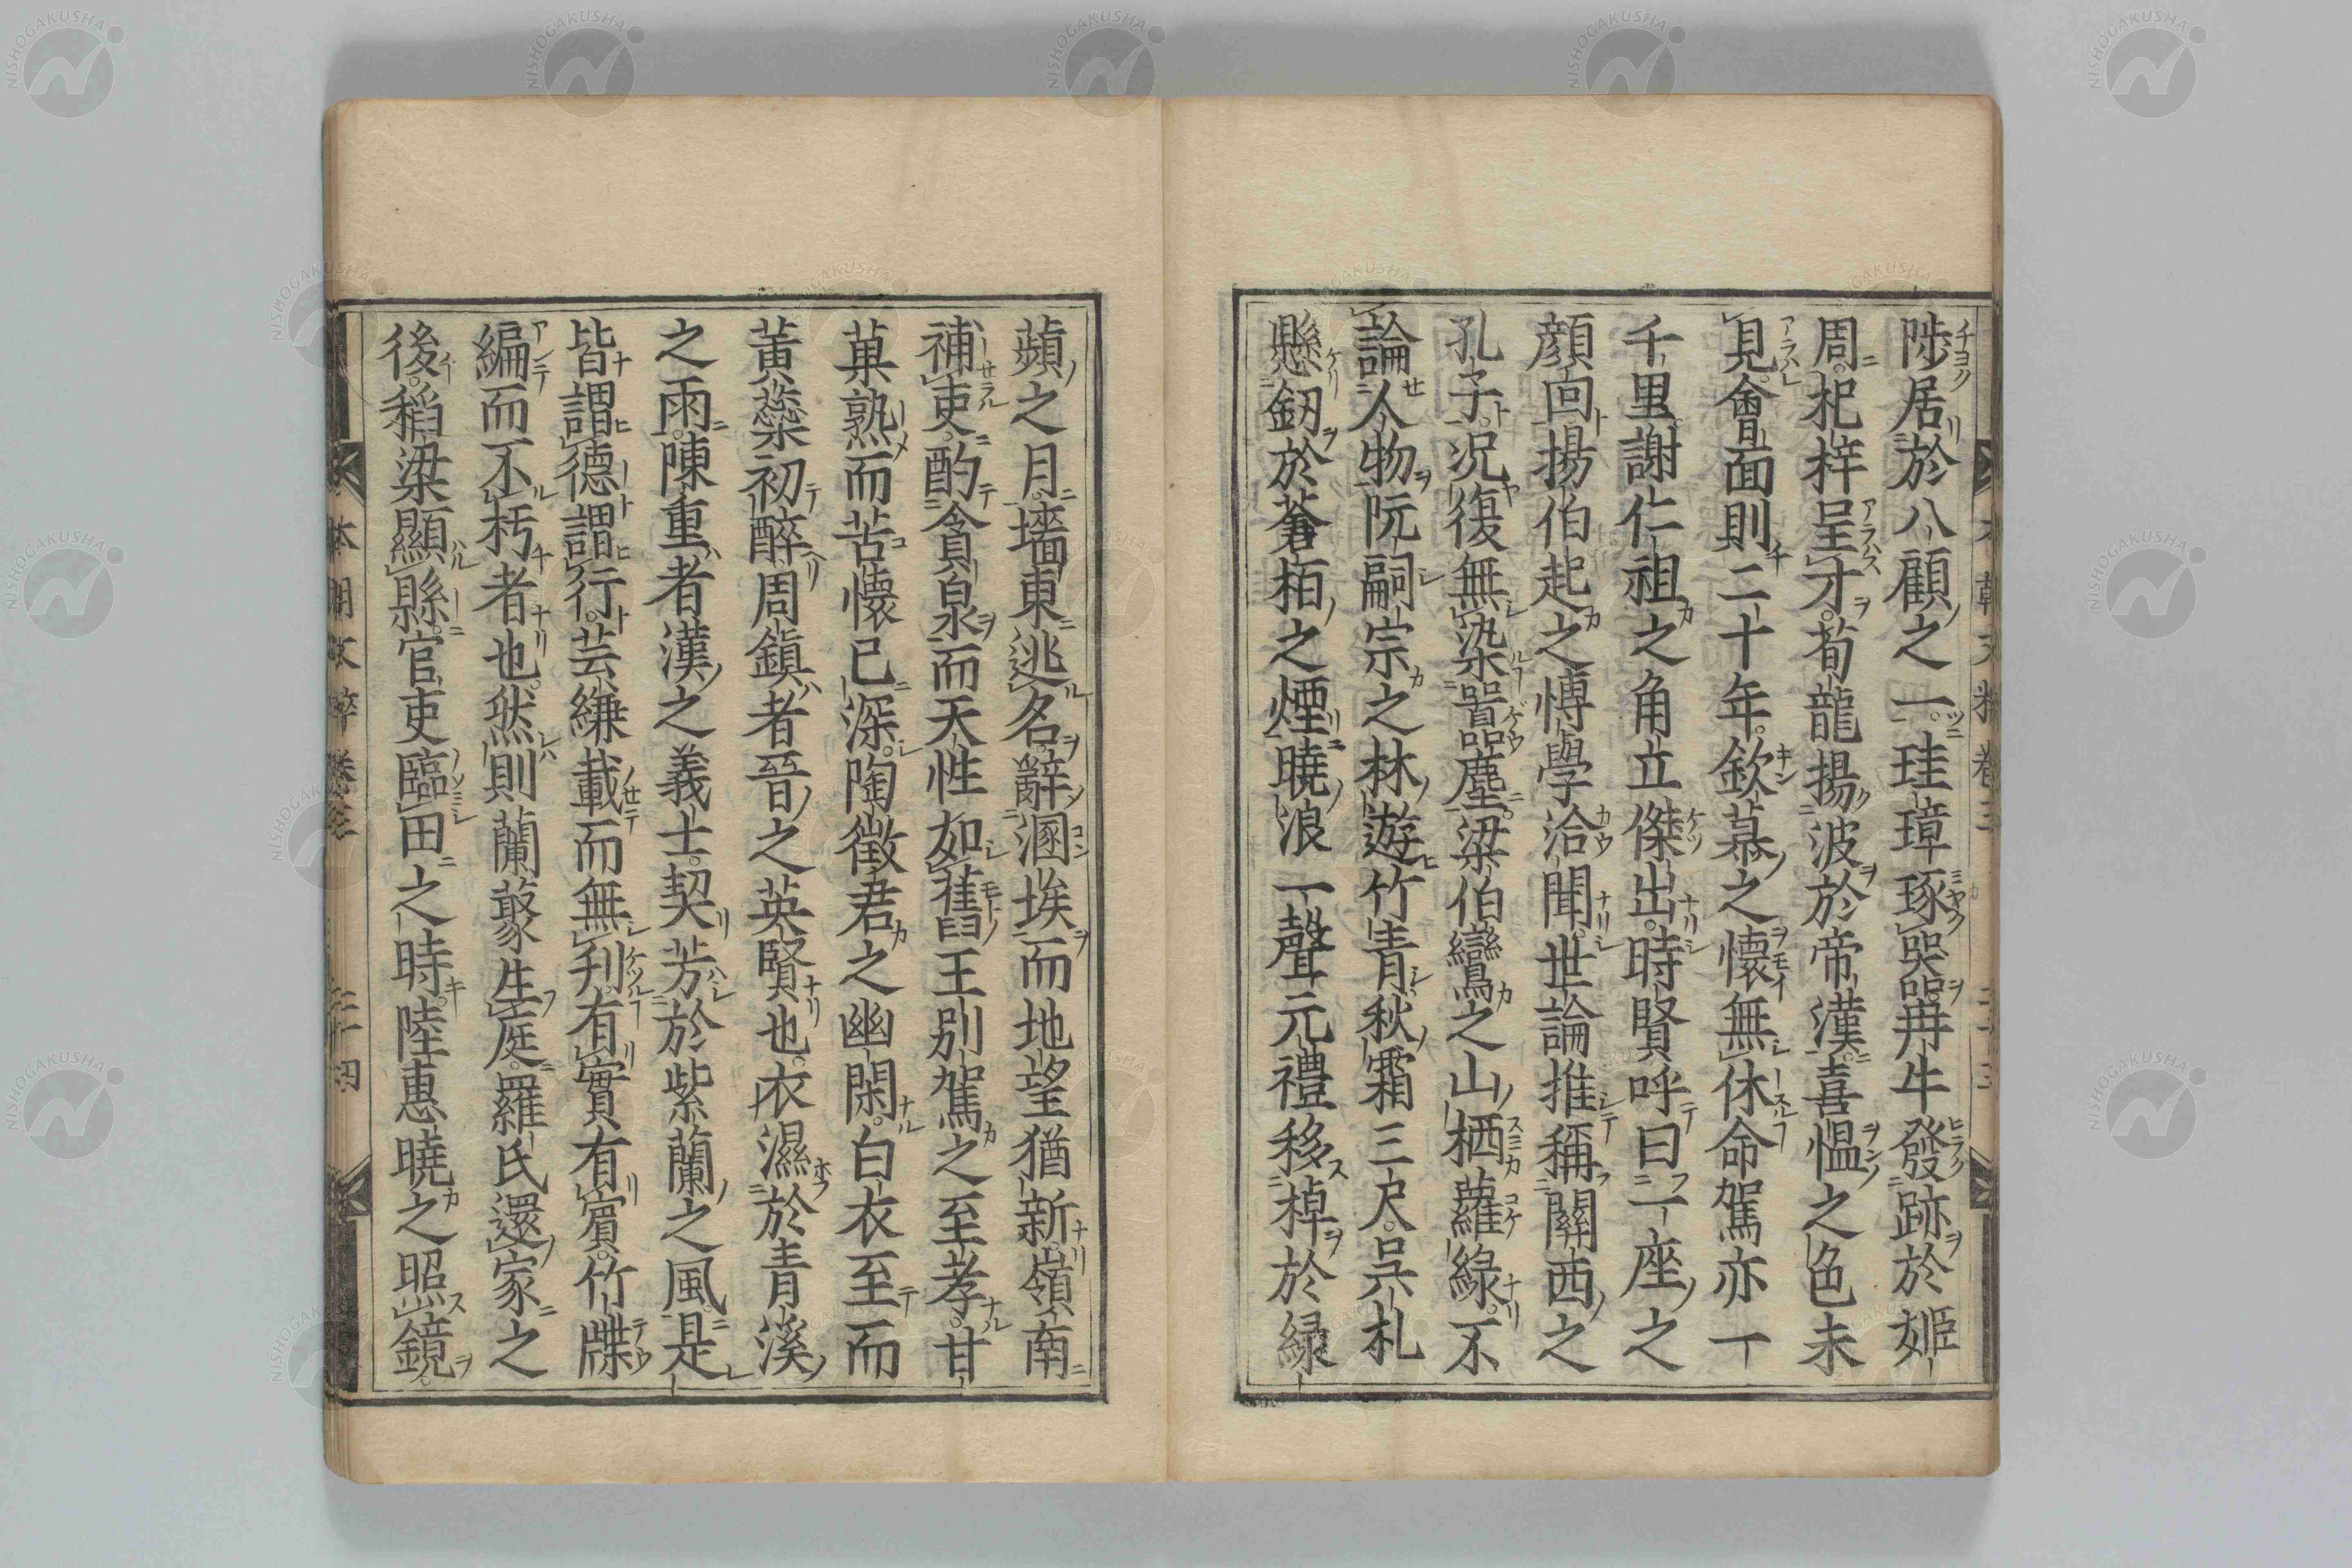 陟居於八顧之一。珪璋琢器冉牛發跡於姫
周。杞梓呈才。荀龍揚波於帝漢。喜慍之色未
見。會面則二十年。欽慕之懷無休命駕亦一
千里。謝仁祖之角立傑出。時賢呼曰一座之
顔回揚伯起之愽學洽聞。世論推稱關西之
孔子。況復無染囂塵。梁伯鸞之山栖蘿綠。不
論人物阮嗣宗之林遊竹青秋霜三尺。呉札
懸釼於蒼栢之煙曉浪一聲元禮移棹於緑
蘋之月。墻東逃名。辭溷埃而地望猶新。嶺南
補吏。酌貪泉而天性如舊王別駕之至孝。甘
菓熟而苦懷已深。陶徵君之幽閑。白衣至而
黄蘂初醉周鎭者晉之英賢也。衣濕於青溪
之雨。陳重者漢之義士。契芳於紫蘭之風。是
皆謂德謂行。芸縑載而無刋。有實有賓。竹牒
編而不朽者也。然則蘭藂生庭。羅氏還家之
後。稻梁顯縣。官吏臨田之時。陸惠曉之照鏡。
本朝文粹卷三
三十四